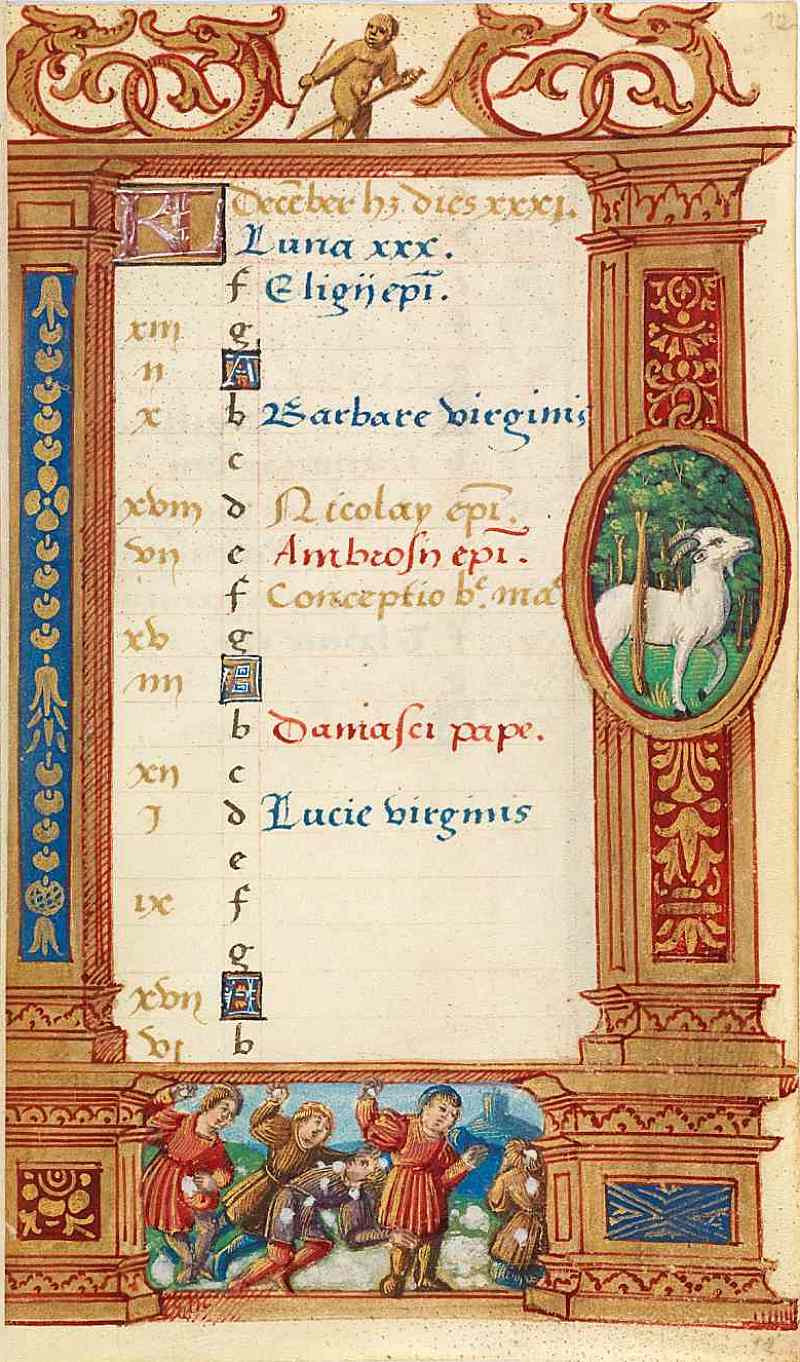 KL Decēber hȝ dies xxxi.
Luna xxx.
f Eligij epī.
xiii g
ii A
x b Barbare virginis
c
xviii d Nicolay epī.
vii e Ambrosij epī.
f Conceptio bᵉ. maᵉ
xv g
iiii A
b Damasci pape.
xii c
j d Lucie virginis
e
ix f
g
xvii A
vi b
12